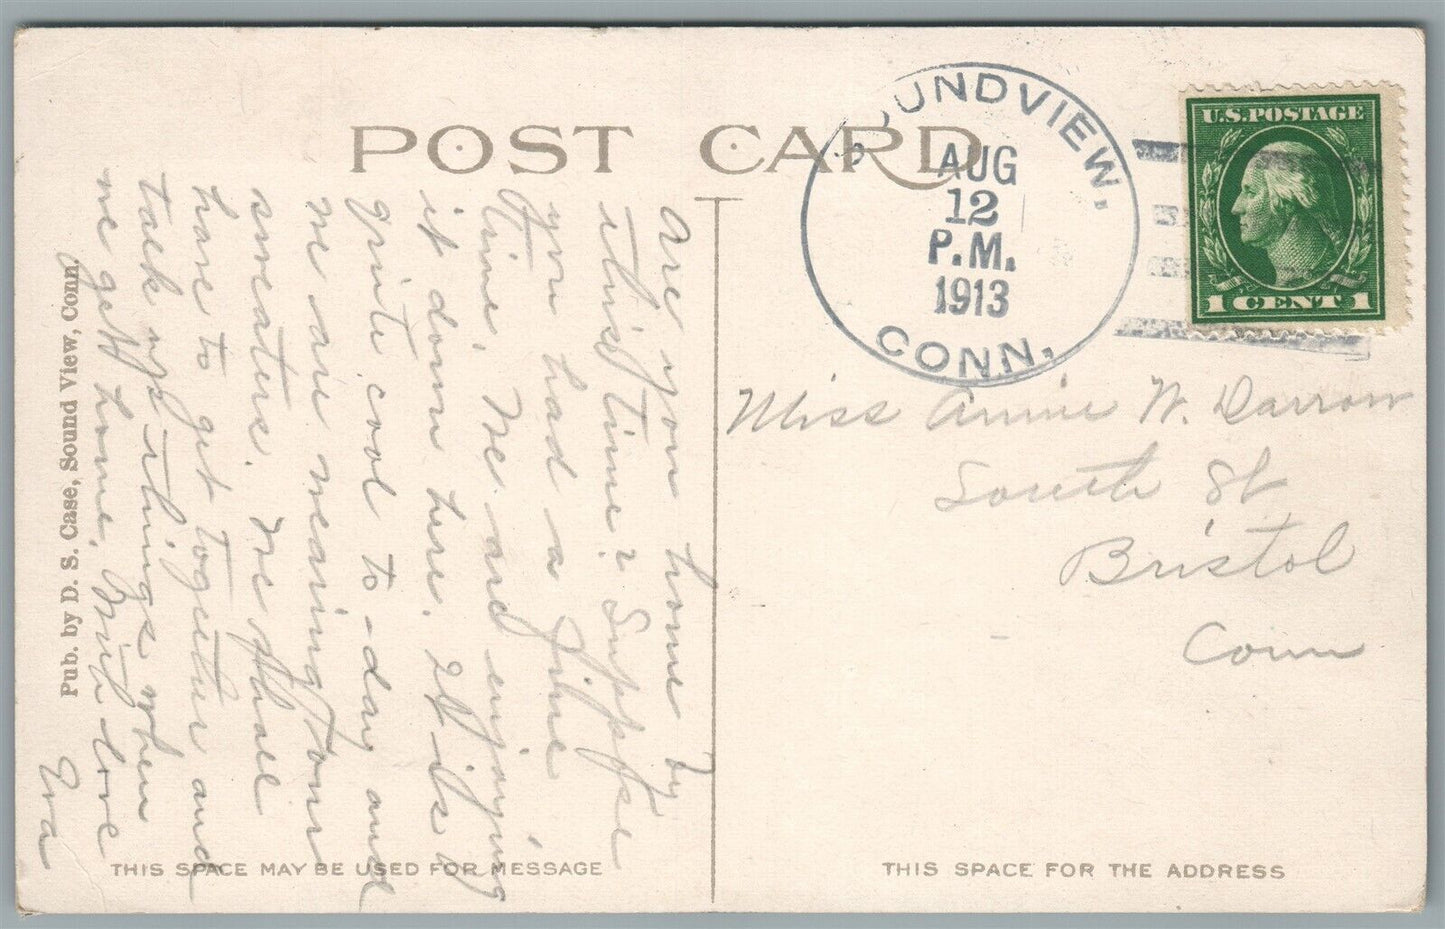 POST CARD
SOUNDVIEW,
AUG
12
P.M.
1913
CONN.
U.S. POSTAGE
1 CENT 1
Are you home by
this time? Suppose
you had a fine
time. We are enjoying
it down here. It is
quite cool to-day and
we are wearing our
sweaters. We shall
have to get together and
talk up things when
we get home. With love
Eva
Pub. by D. S. Case, Sound View, Conn.
THIS SPACE MAY BE USED FOR MESSAGE
Miss Annie W. Darrow
South St
Bristol
Conn
THIS SPACE FOR THE ADDRESS